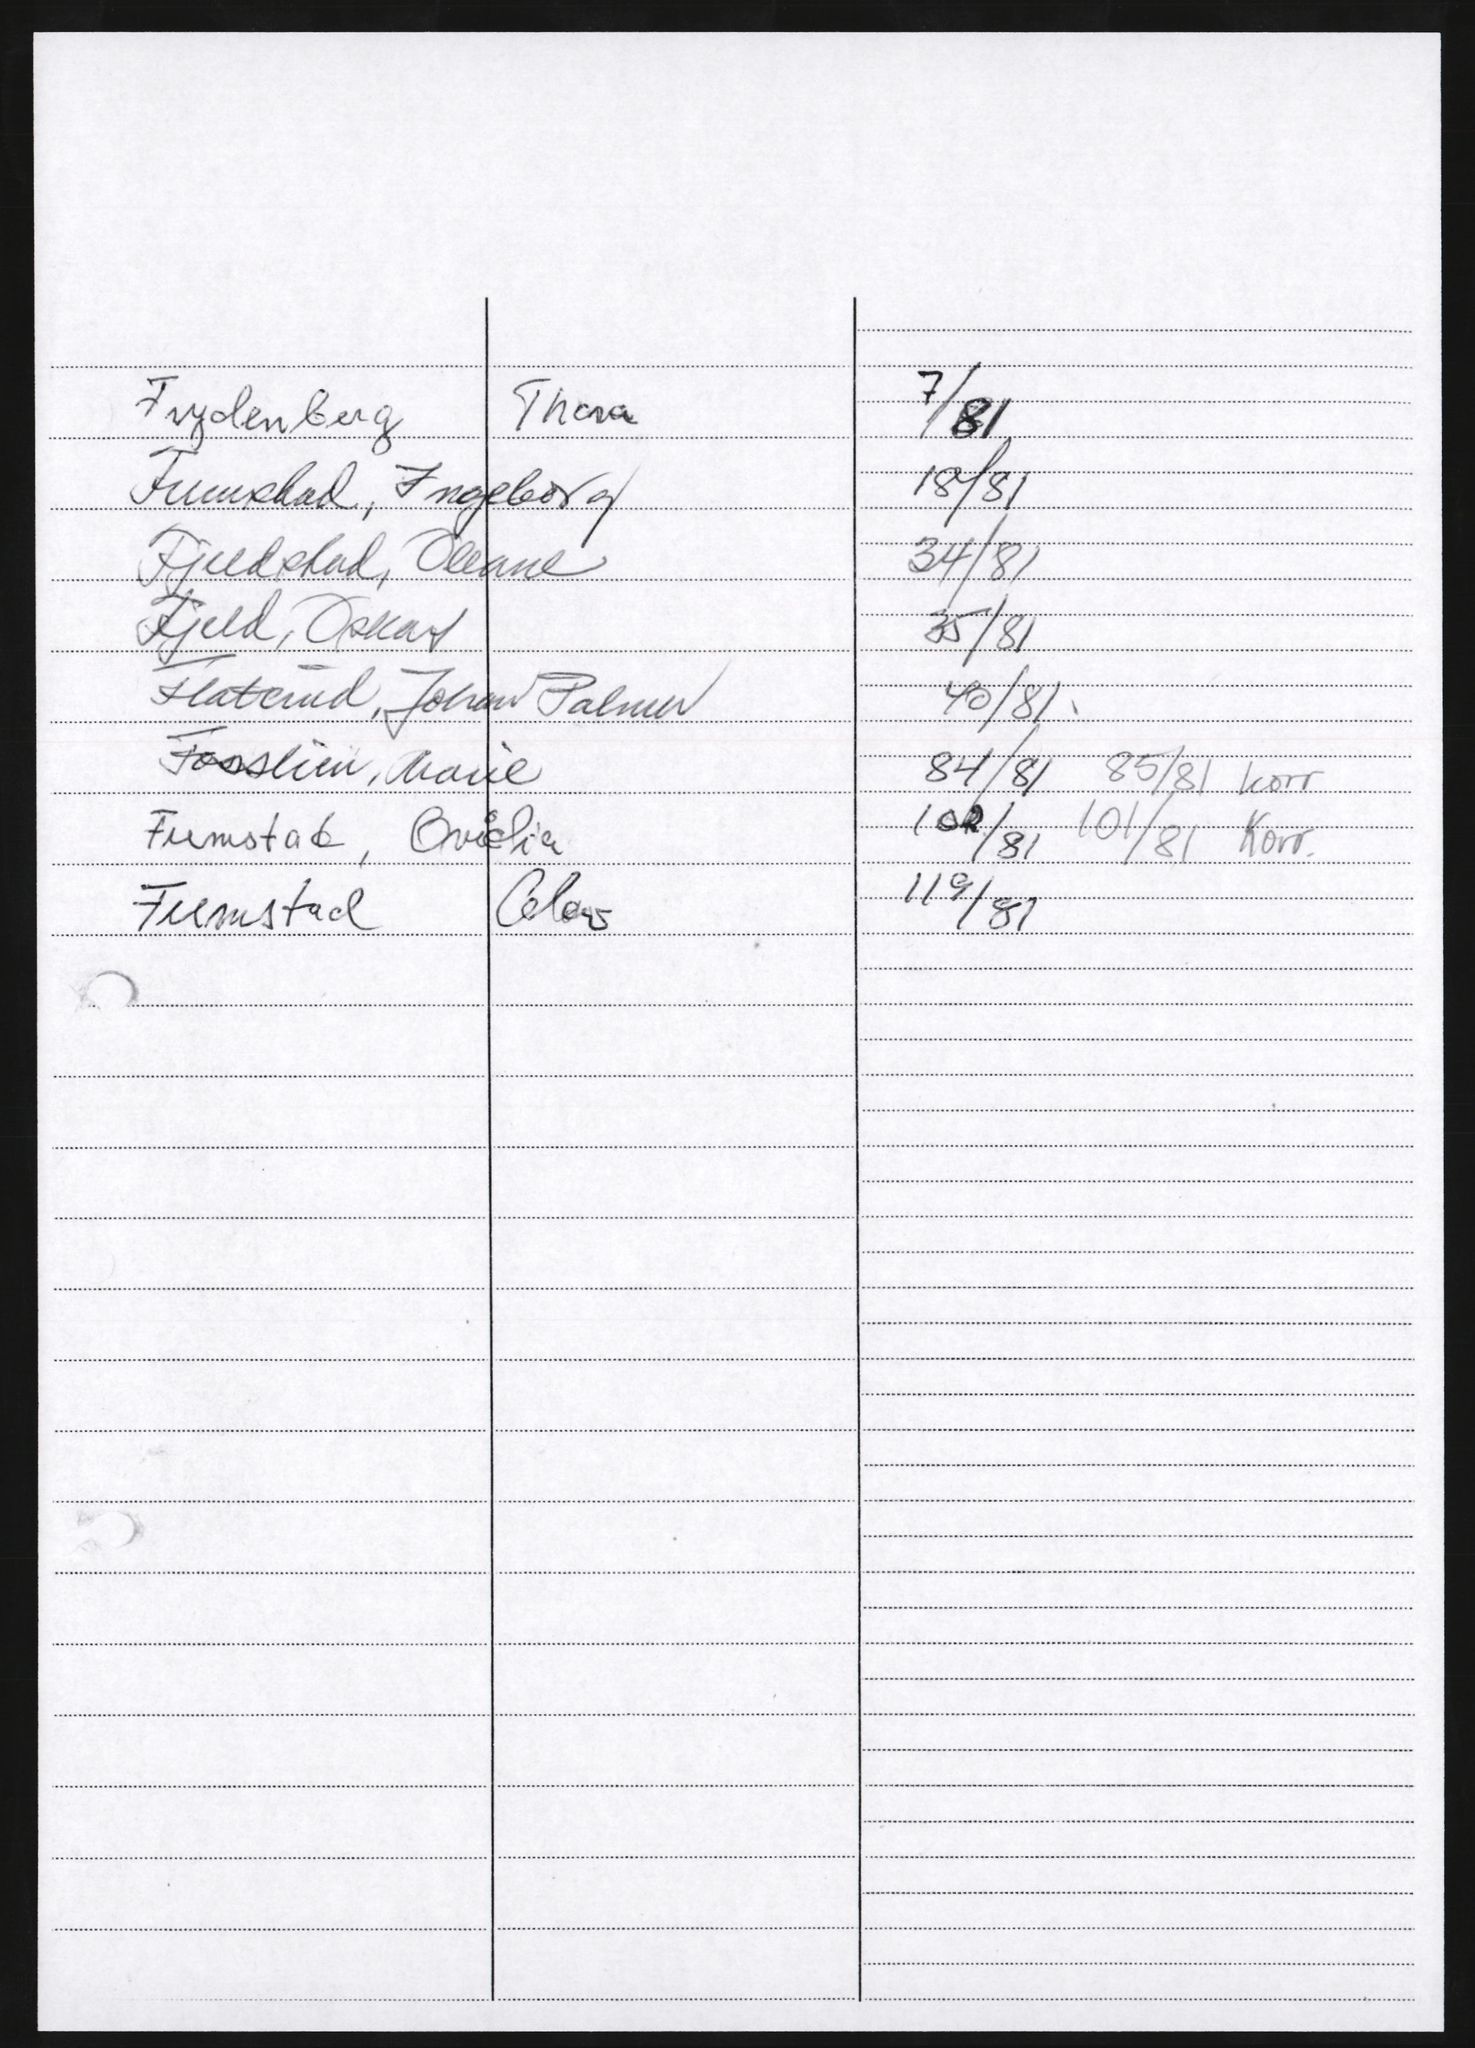 Frydenberg Thora 7/81
Furustad, Ingeborg 18/81
Fjeldstad, Oleane 34/81
Fjeld, Oskar 35/81
Flaterud, Johan Palmer 40/81
Fosslien, Marie 84/81 85/81 korr
Furustad, Ovidia 102/81 101/81 Korr.
Furustad 119/81